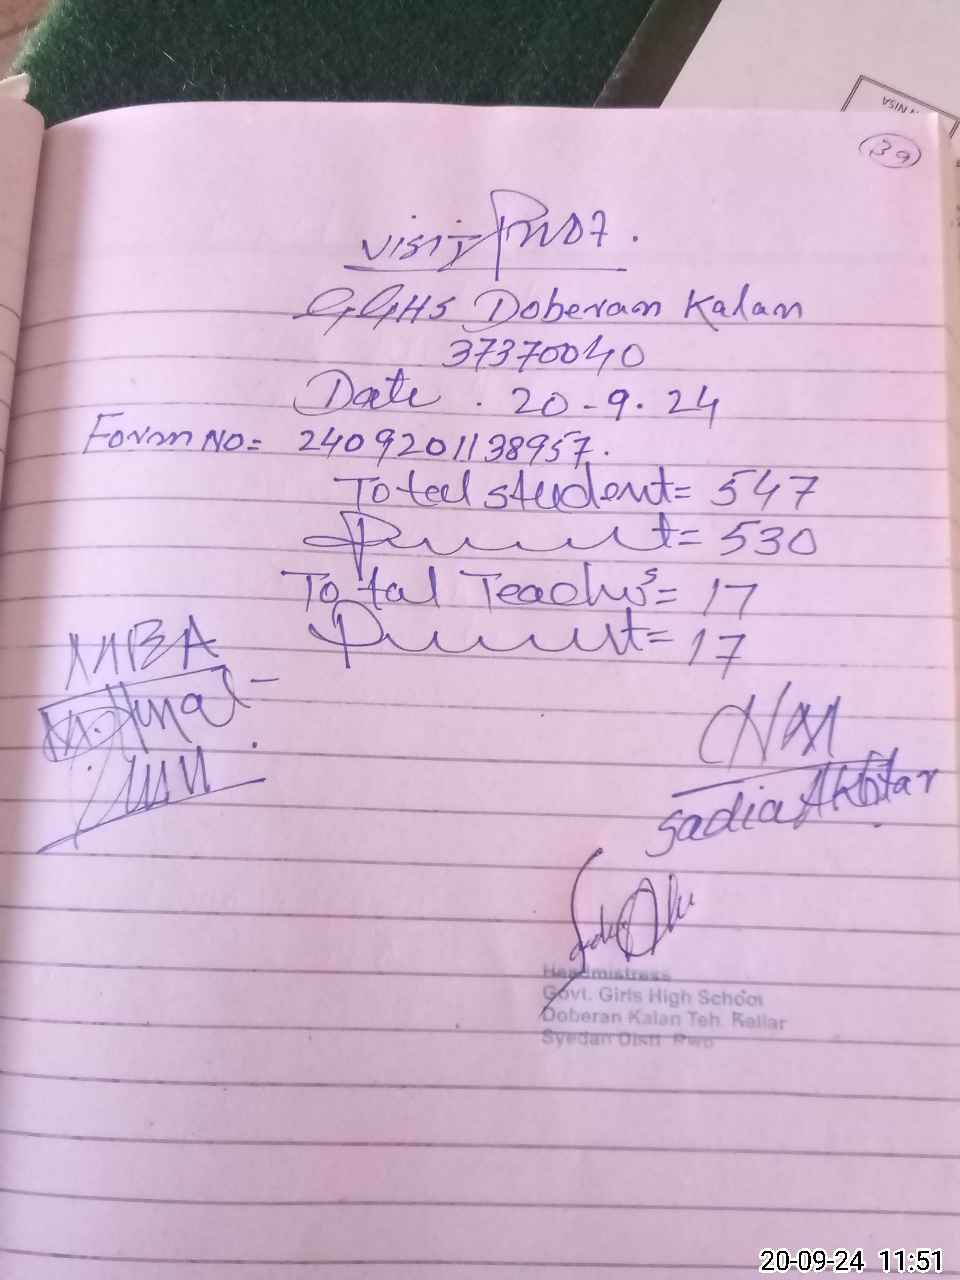 39
Visit Proof.
GGHS Doberan Kalan
37370040
Date . 20-9.24
Form No= 2409201138957.
Total student= 547
Present= 530
Total Teachers= 17
Present= 17
MBA
Sadia Akhtar
Headmistress
Govt. Girls High School
Doberan Kalan Teh. Kallar
Syedan Distt. Rwp
20-09-24 11:51